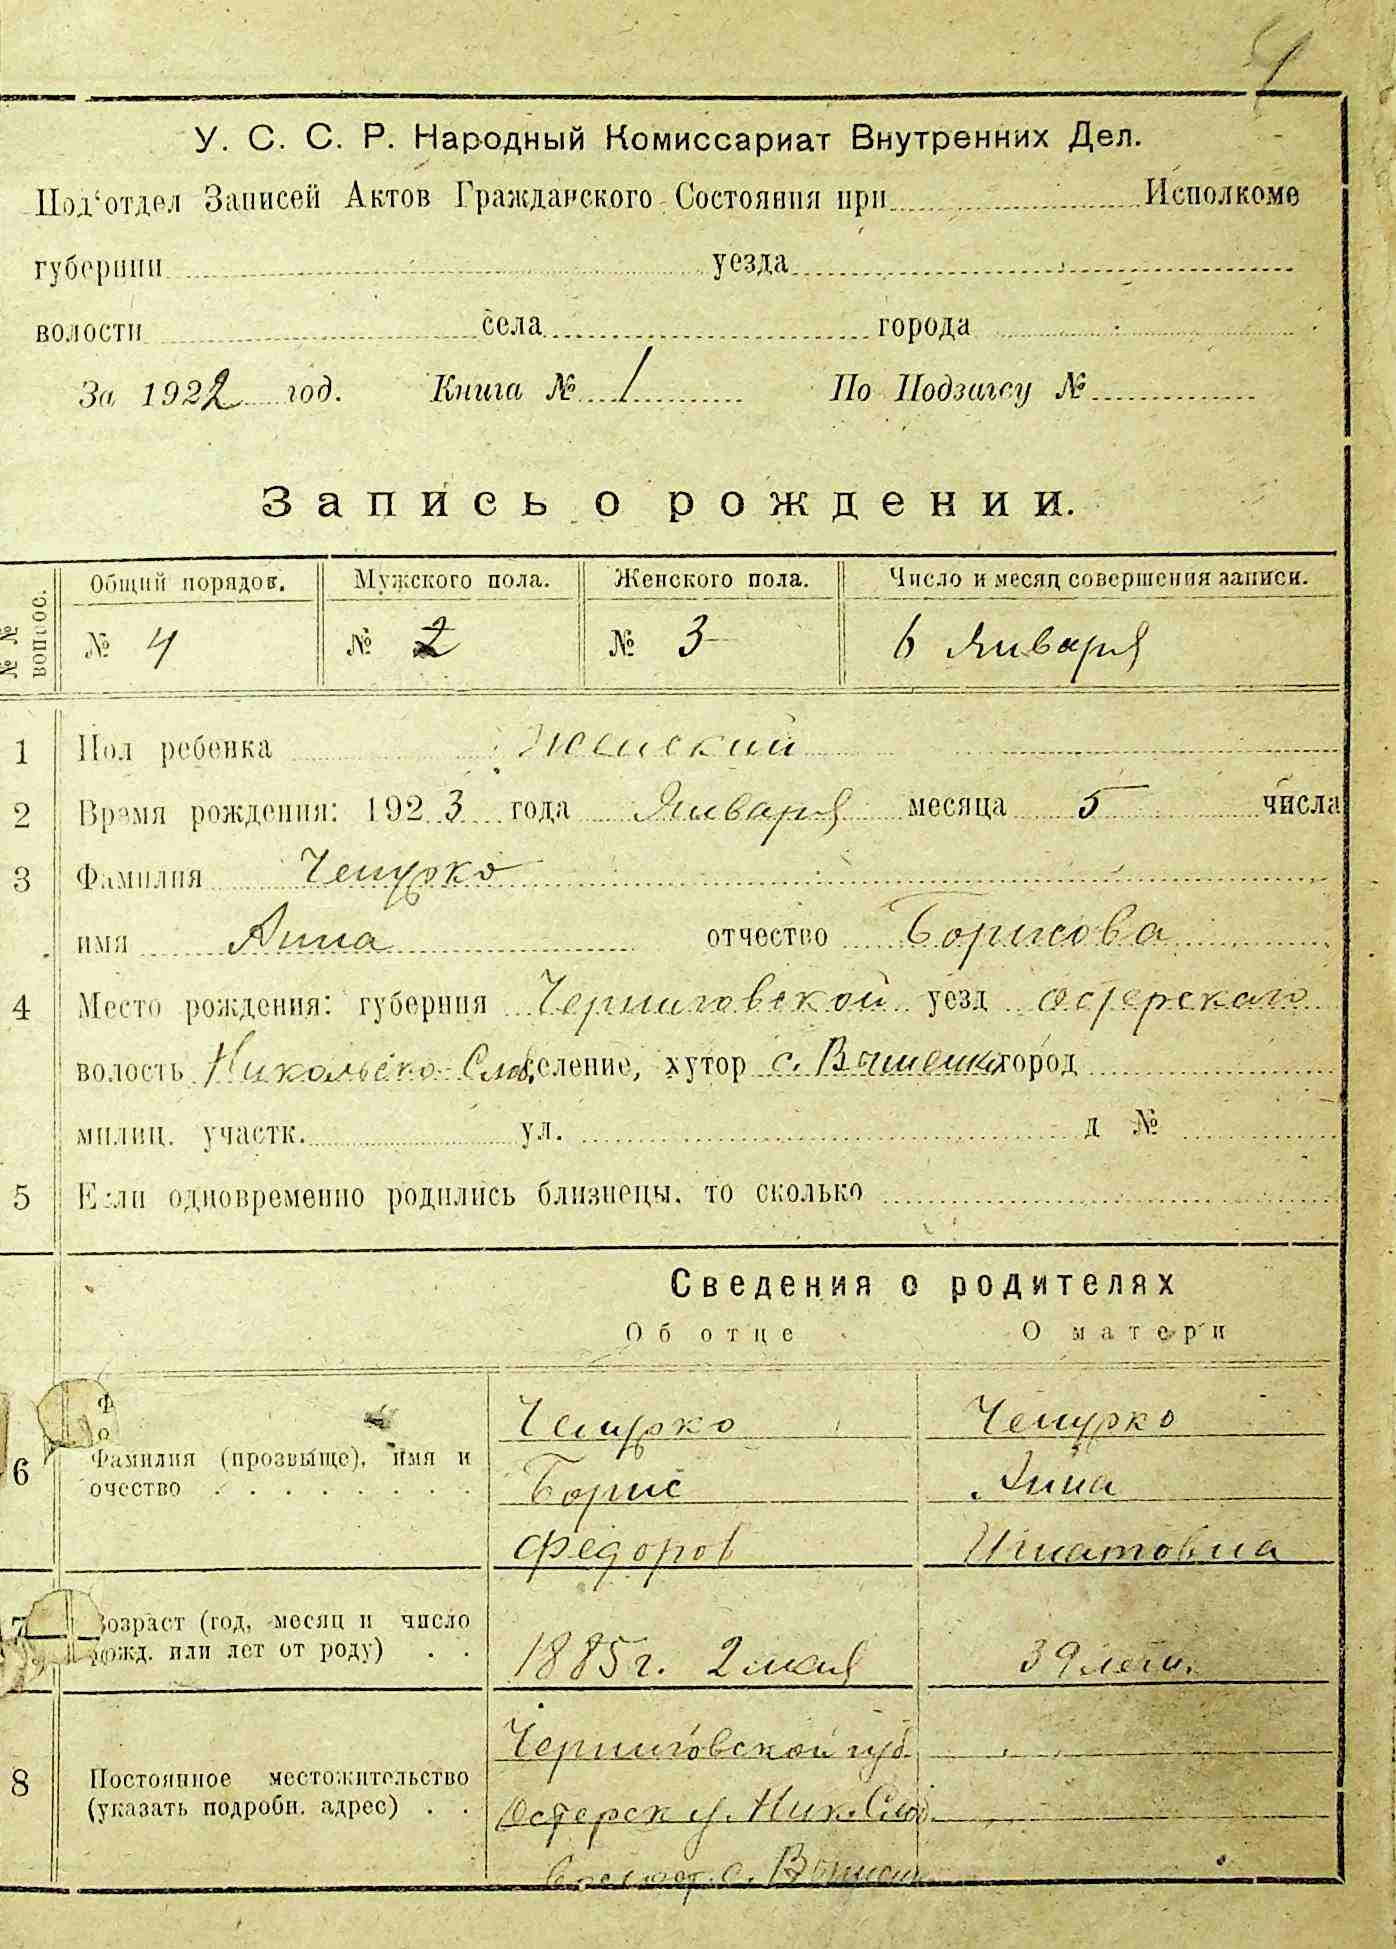 У. С. С. Р. Народный Комиссариат Внутренних Дел.
Под'отдел Записей Актов Гражданского Состояния при Исполкоме
губернии уезда
волости села города
За 1922 год. Книга № 1 По Подзагсу №
Запись о рождении.
№ № вопрос. Общий порядов. Мужского пола. Женского пола. Число и месяц совершения записи.
№ 4 № 2 № 3 6 Января
1 Пол ребенка Женский
2 Время рождения: 1923 года Января месяца 5 числа
3 Фамилия Чепурко
имя Анна отчество Борисова
4 Место рождения: губерния Черниговской уезд Остерскаго
волость Никольско-Слоб. селение, хутор с. Вишенки город
милиц. участк. ул. д №
5 Если одновременно родились близнецы, то сколько
Сведения о родителях
Об отце О матери
6 Фамилия (прозвыще), имя и очество Чепурко Чепурко
Борис Анна
Федоров Игнатовна
7 Возраст (год, месяц и число рожд. или лет от роду) 1885 г. 2 мая 39 лет.
8 Постоянное местожительство (указать подробн. адрес) Черниговской губ
Остерск у. Ник. Слоб.